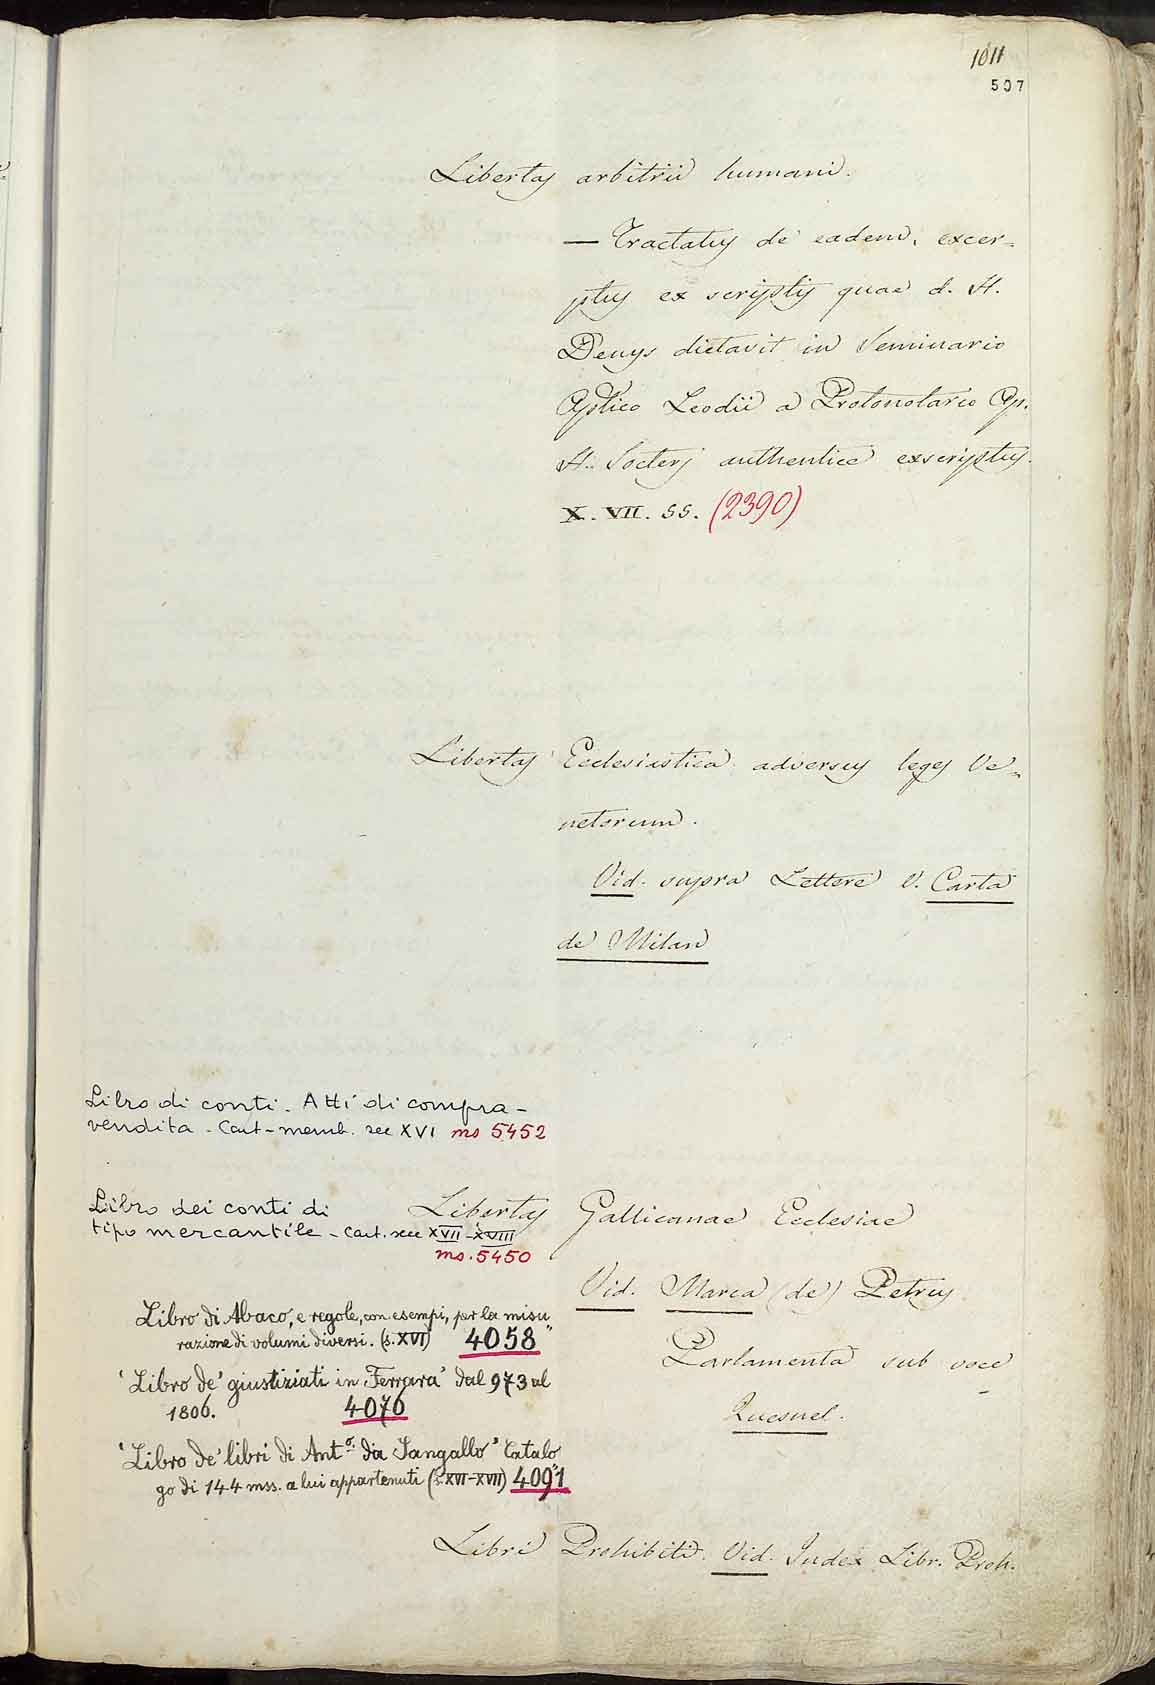 1011
507
Libertas arbitrii humani.
— Tractatus de eadem, excer=
ptus ex scriptis quae d. H.
Denys dictavit in Seminario
Aplico Leodii a Protonotario Ap.
H. Socters authentice exscriptus.
X. VII. 55. (2390)
Libertas Ecclesiastica adversus leges Ve=
netorum.
Vid. supra Lettere V. Carta
de Milan
Libro di conti. Atti di compra-
vendita - Cart-memb. sec XVI ms 5452
Libro dei conti di
tipo mercantile - Cart. sec XVII-XVIII
ms. 5450
Libertas Gallicanae Ecclesiae
Vid. Marca (de) Petrus
Parlamenta sub voce
Quesnel.
Libro di Abaco, e regole, con esempi, per la misu
razione di volumi diversi. (s. XVI) 4058
"Libro de' giustiziati in Ferrara" dal 973 al
1806. 4076
"Libro de' libri di Ant.o da Sangallo" Catalo
go di 144 mss. a lui appartenuti (s. XVI-XVII) 4091
Libri Prohibiti. Vid. Index Libr. Proh.